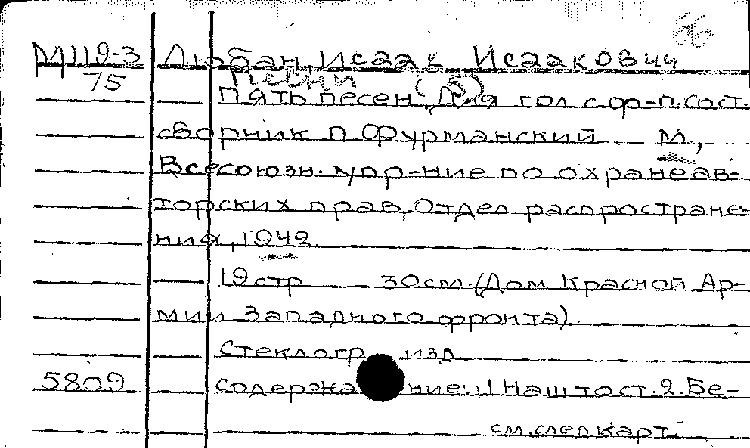 М119-3 Любан, Исаак Исаакович
75 Песни (5)
Пять песен. Для гол. с ф-п. Сост.
сборник П. Фурманский. М.,
Всесоюзн. упр-ние по охране ав-
торских прав, Отдел распростране-
ния, 1942.
19 стр. 30 см. (Дом Красной Ар-
мии Западного фронта).
Стеклогр. изд.
5809 Содержание: 1. Наш тост. 2. Бе-
см. след. карт.